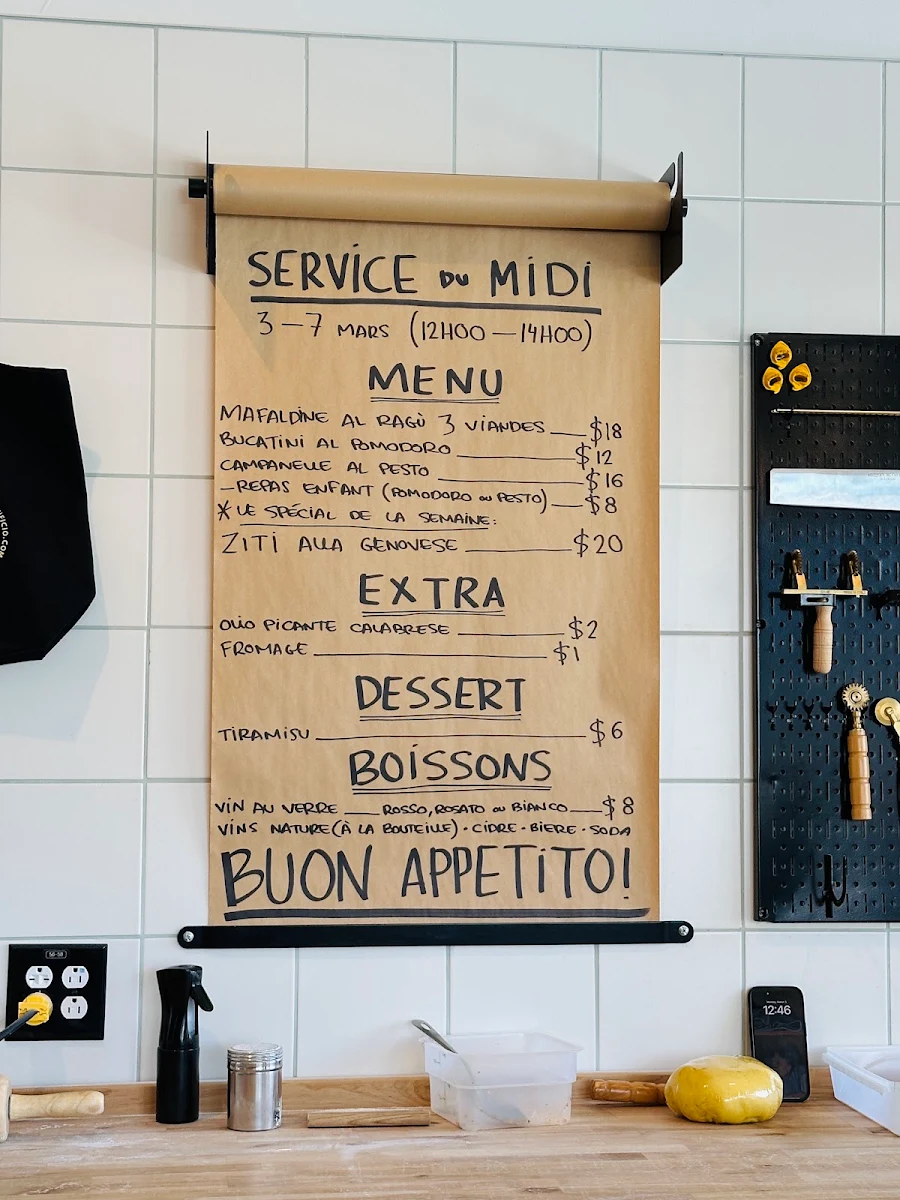 SERVICE DU MIDI
3 – 7 MARS (12H00 – 14H00)
MENU
MAFALDINE AL RAGÙ 3 VIANDES $18
BUCATINI AL POMODORO $12
CAMPANELLE AL PESTO $16
– REPAS ENFANT (POMODORO OU PESTO) $8
* LE SPÉCIAL DE LA SEMAINE:
ZITI ALLA GENOVESE $20
EXTRA
OLIO PICANTE CALABRESE $2
FROMAGE $1
DESSERT
TIRAMISU $6
BOISSONS
VIN AU VERRE — ROSSO, ROSATO OU BIANCO $8
VINS NATURE (À LA BOUTEILLE) · CIDRE · BIERE · SODA
BUON APPETITO!
12:46